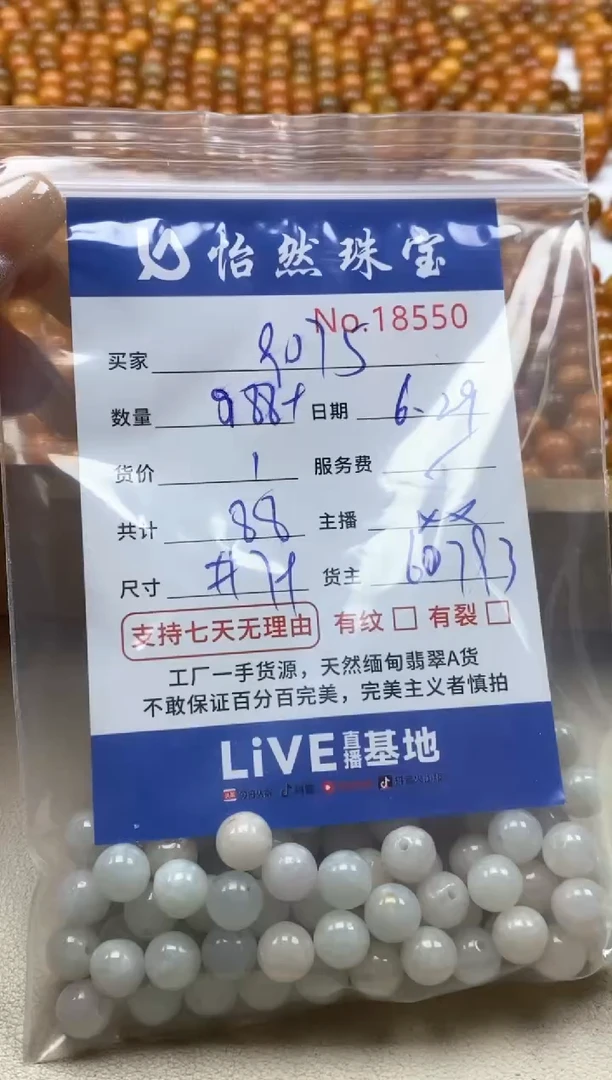 怡然珠宝
No.18550
买家 9075
数量 988+ 日期 6.29
货价 1 服务费
共计 88 主播 xx
尺寸 货主
支持七天无理由 有纹 有裂
工厂一手货源，天然缅甸翡翠A货
不敢保证百分百完美，完美主义者慎拍
LiVE直播基地